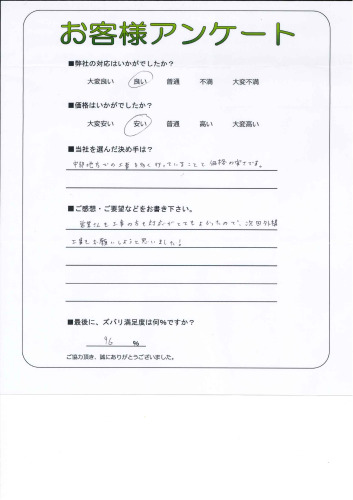 お客様アンケート
■弊社の対応はいかがでしたか?
大変良い 良い 普通 不満 大変不満
■価格はいかがでしたか?
大変安い 安い 普通 高い 大変高い
■当社を選んだ決め手は?
地方での工事も多く行っていることと価格の安さです。
■ご感想・ご要望などをお書き下さい。
営業さんも工事の方も対応がとてもよかったので、次回外構
工事もお願いしようと思いました!
■最後に、ズバリ満足度は何%ですか?
96 %
ご協力頂き、誠にありがとうございました。